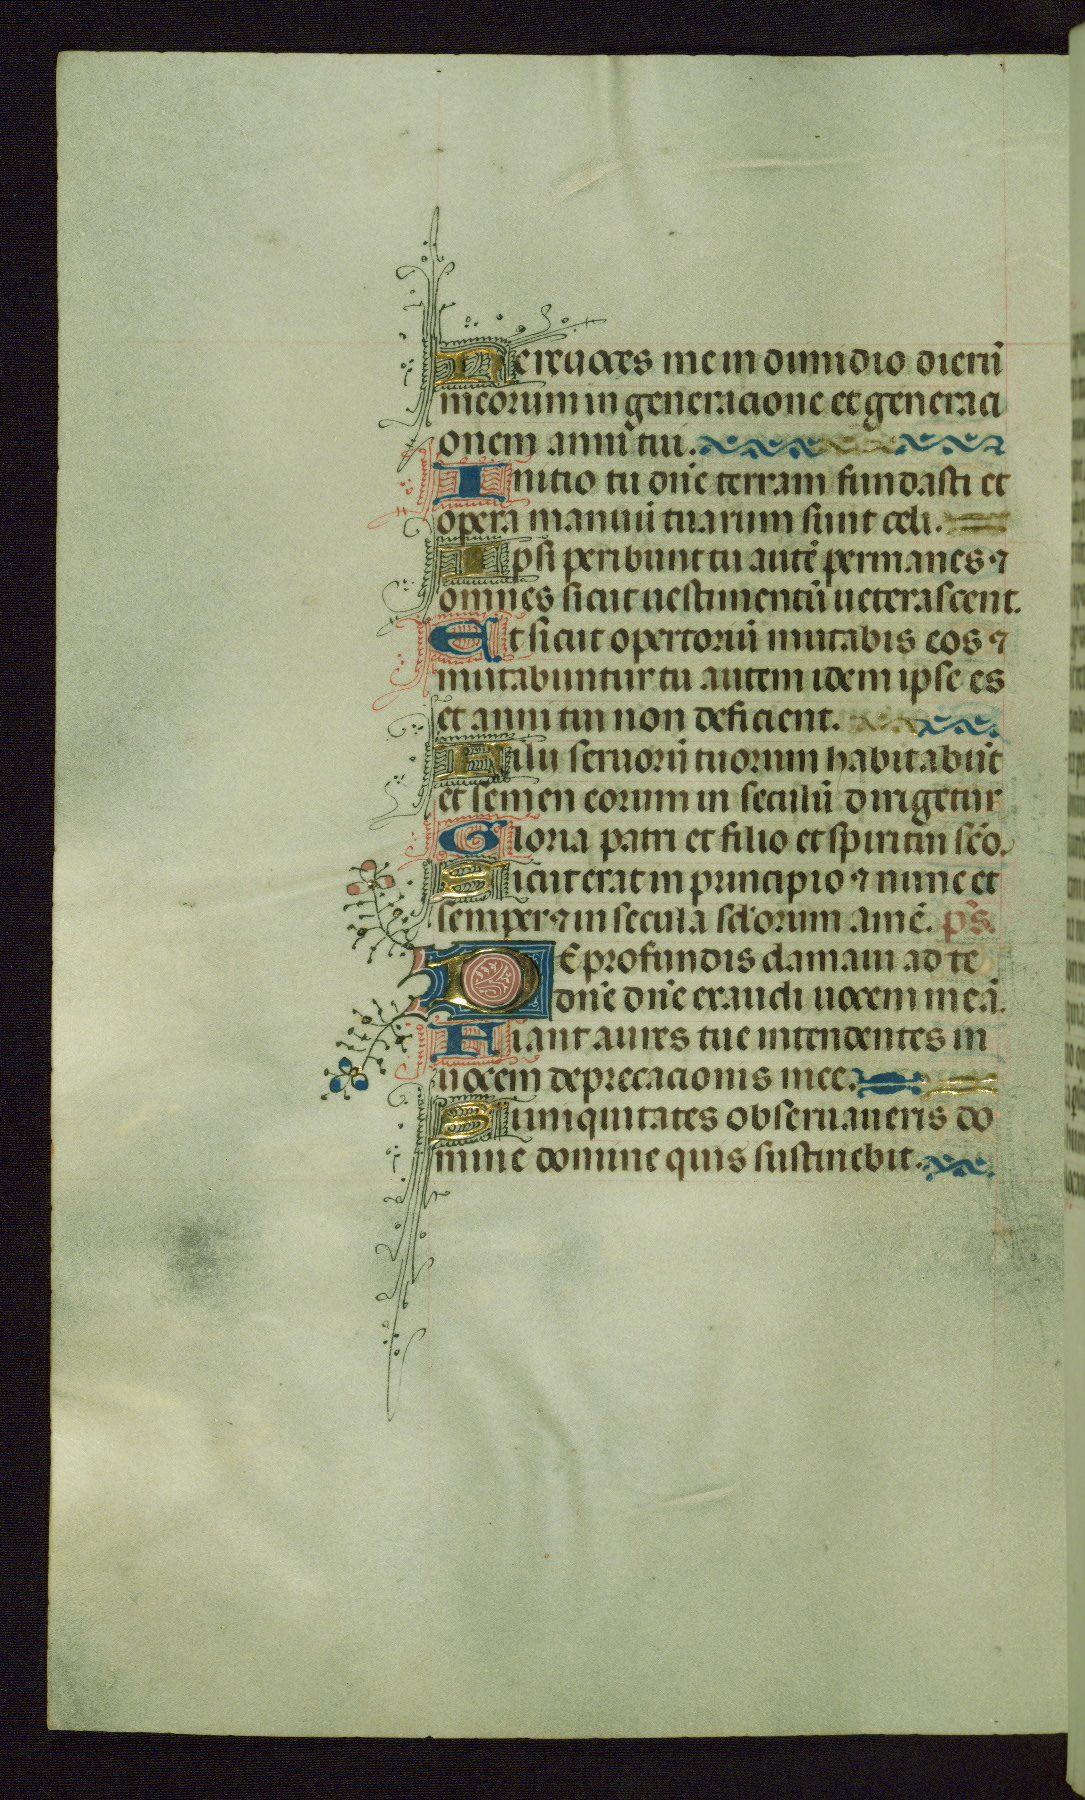 Ne reuoces me in dimidio dierū
meorum in generacione et generaci
onem anni tui.
Initio tu dn̄e terram fundasti et
opera manuū tuarum sunt celi.
Ipsi peribunt tu autē permanes ⁊
omnes sicut uestimentū ueterascent.
Et sicut opertoriū mutabis eos ⁊
mutabuntur tu autem idem ipse es
et anni tui non deficient.
Filii seruorū tuorum habitabūt
et semen eorum in seculū dirigetur
Gloria patri et filio et spiritui scō.
Sicut erat in principio ⁊ nunc et
semper ⁊ in secula sclōrum amē. ps̄.
DE profundis clamaui ad te
dn̄e dn̄e exaudi uocem meā.
Fiant aures tue intendentes in
uocem deprecacionis mee.
Si iniquitates obseruaueris do
mine domine quis sustinebit.